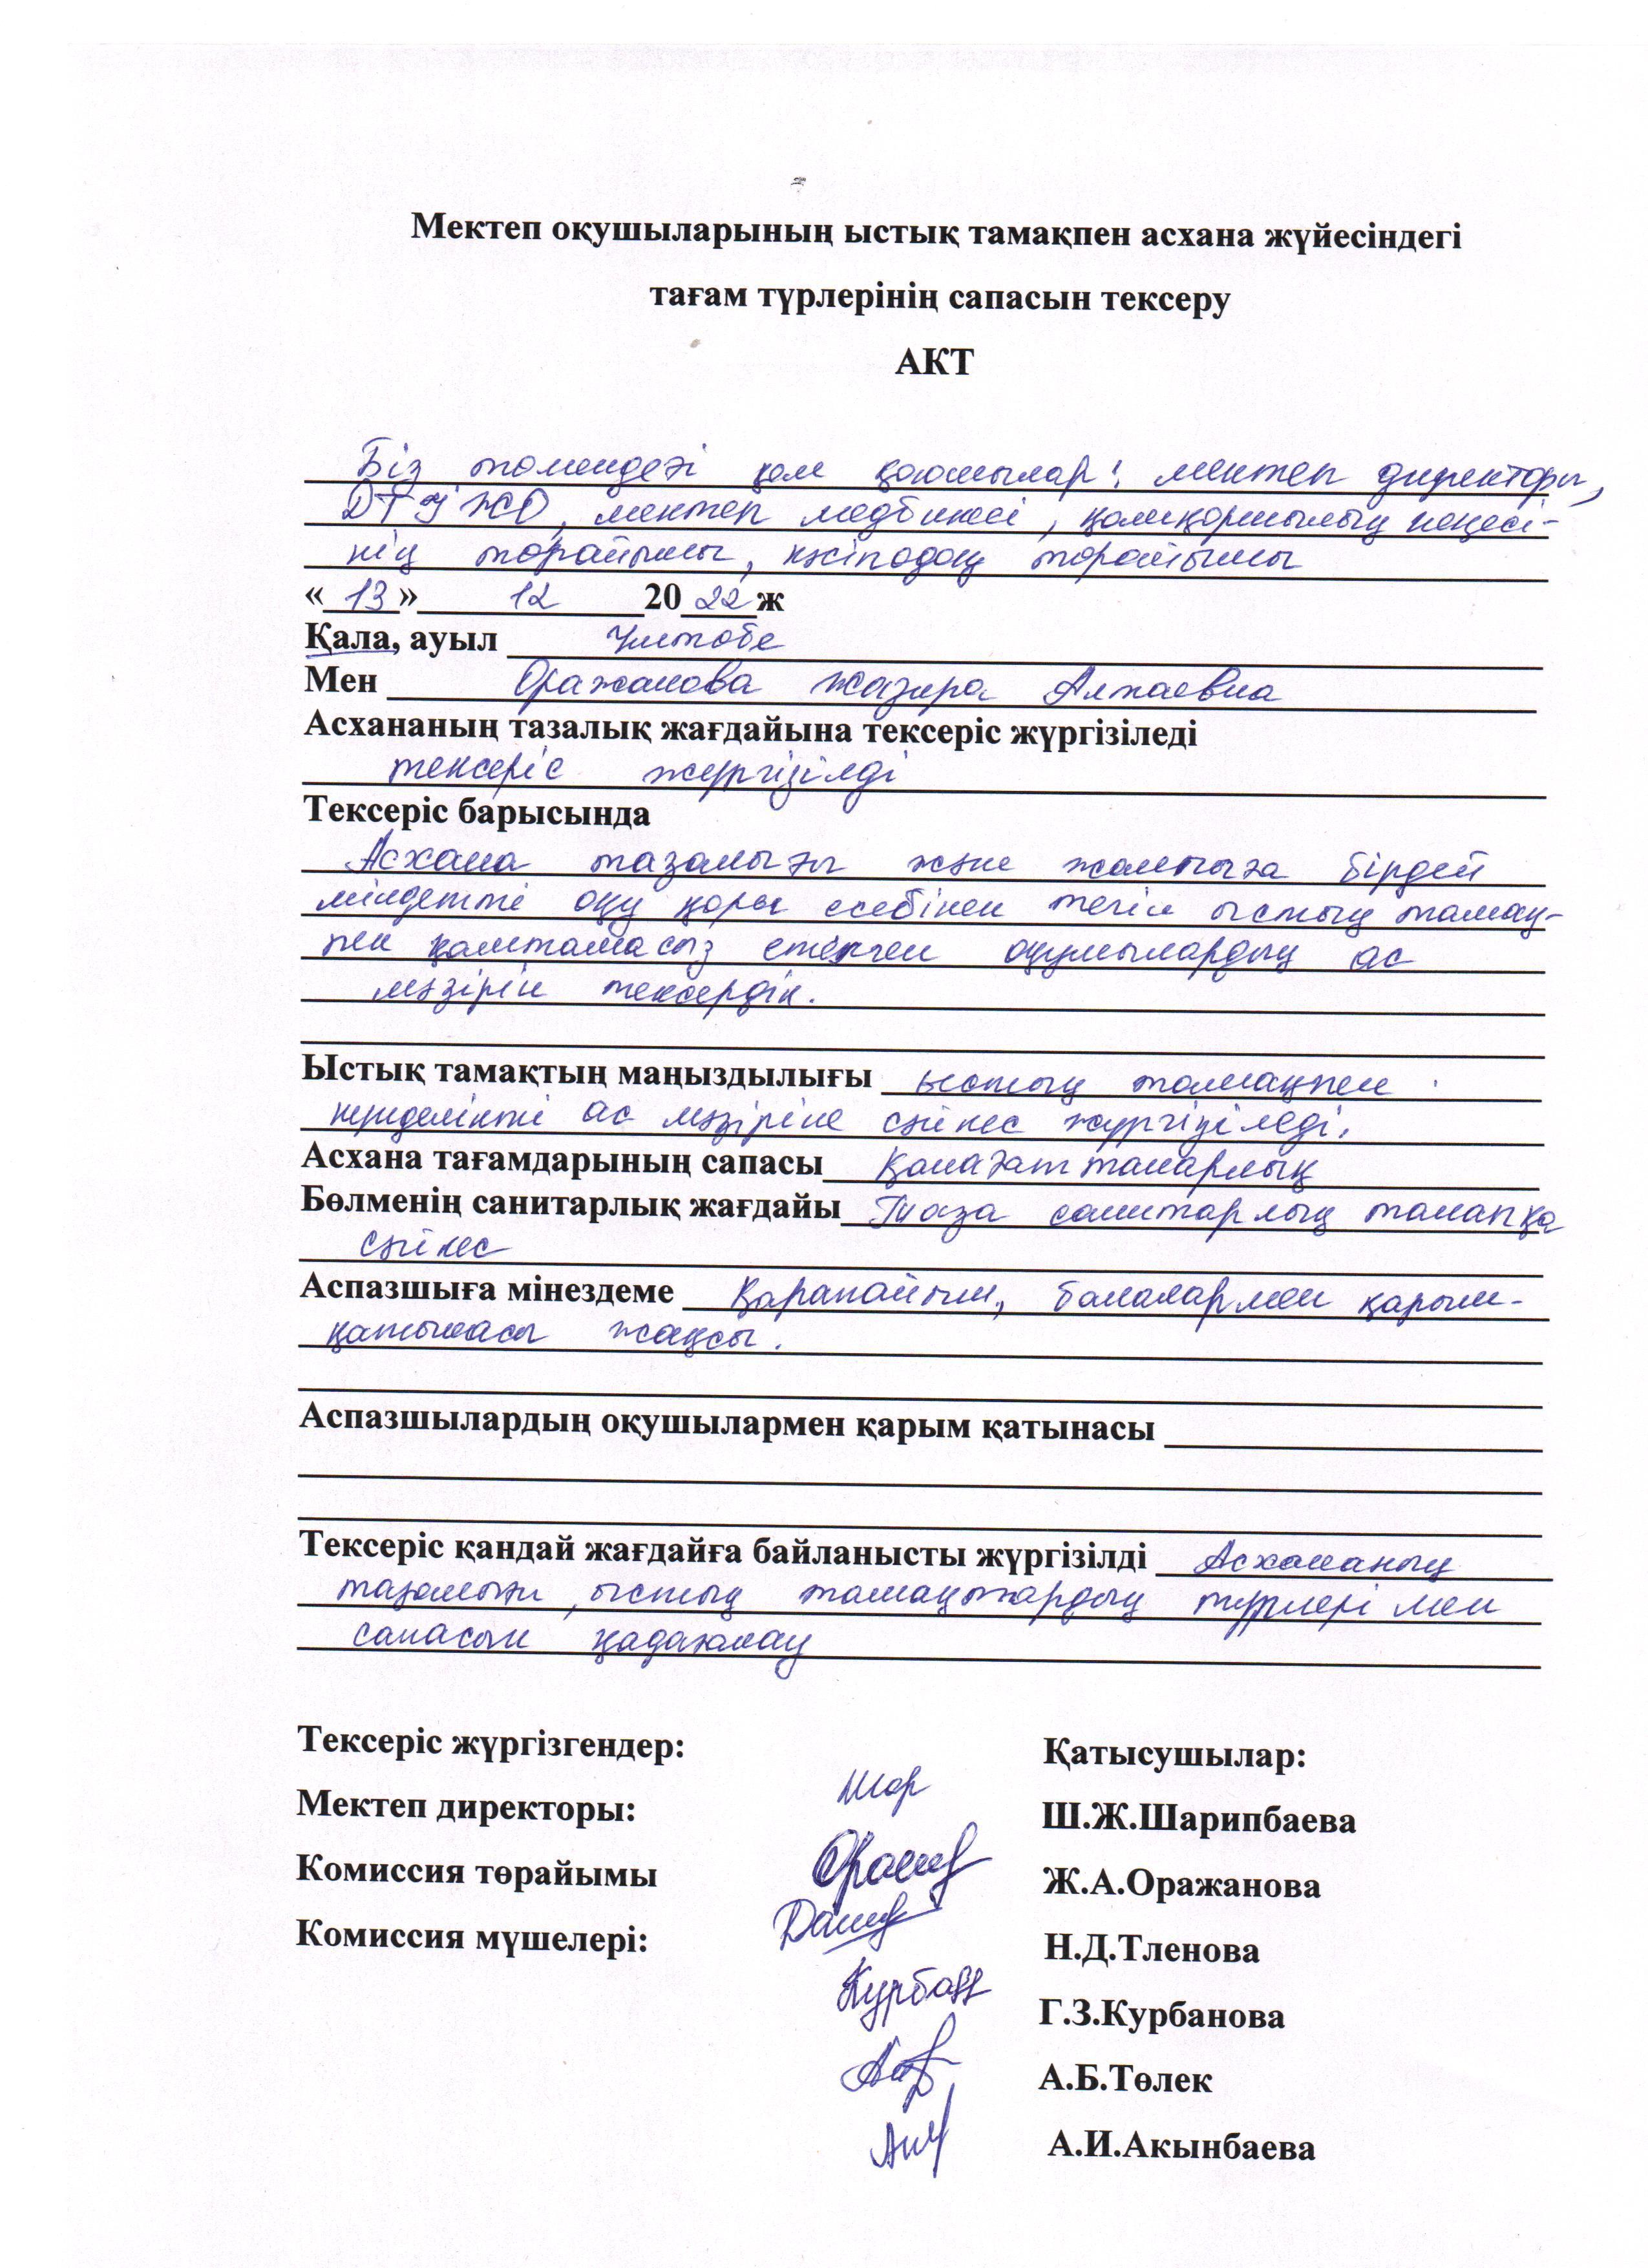 Мектеп оқушыларының ыстық тамақпен асхана жүйесіндегі
тағам түрлерінің сапасын тексеру
АКТ
Біз төмендегі қол қоюшылар: мектеп директоры,
ДТІЖО, мектеп медбикесі, қамқоршылық кеңесі-
нің төрайымы, кәсіподақ төрайымы
«13» 12 2022ж
Қала, ауыл Үштөбе
Мен Оражанова Жазира Алпаевна
Асхананың тазалық жағдайына тексеріс жүргізіледі
тексеріс жүргізілді
Тексеріс барысында
Асхана тазалығы және жалпыға бірдей
міндетті оқу қоры есебінен тегін ыстық тамақ-
пен қамтамасыз етілген оқушылардың ас
мәзірін тексердік.
Ыстық тамақтың маңыздылығы ыстық тамақпен
күнделікті ас мәзіріне сәйкес жүргізіледі.
Асхана тағамдарының сапасы Қанағаттанарлық
Бөлменің санитарлық жағдайы Таза санитарлық талапқа
сәйкес
Аспазшыға мінездеме Қарапайым, балалармен қарым-
қатынасы жақсы.
Аспазшылардың оқушылармен қарым қатынасы
Тексеріс қандай жағдайға байланысты жүргізілді Асхананың
тазалығы, ыстық тамақтардың түрлері мен
сапасын қадағалау
Тексеріс жүргізгендер: Қатысушылар:
Мектеп директоры: Шар Ш.Ж.Шарипбаева
Комиссия төрайымы Ж.А.Оражанова
Комиссия мүшелері: Н.Д.Тленова
Г.З.Курбанова
А.Б.Төлек
А.И.Акынбаева